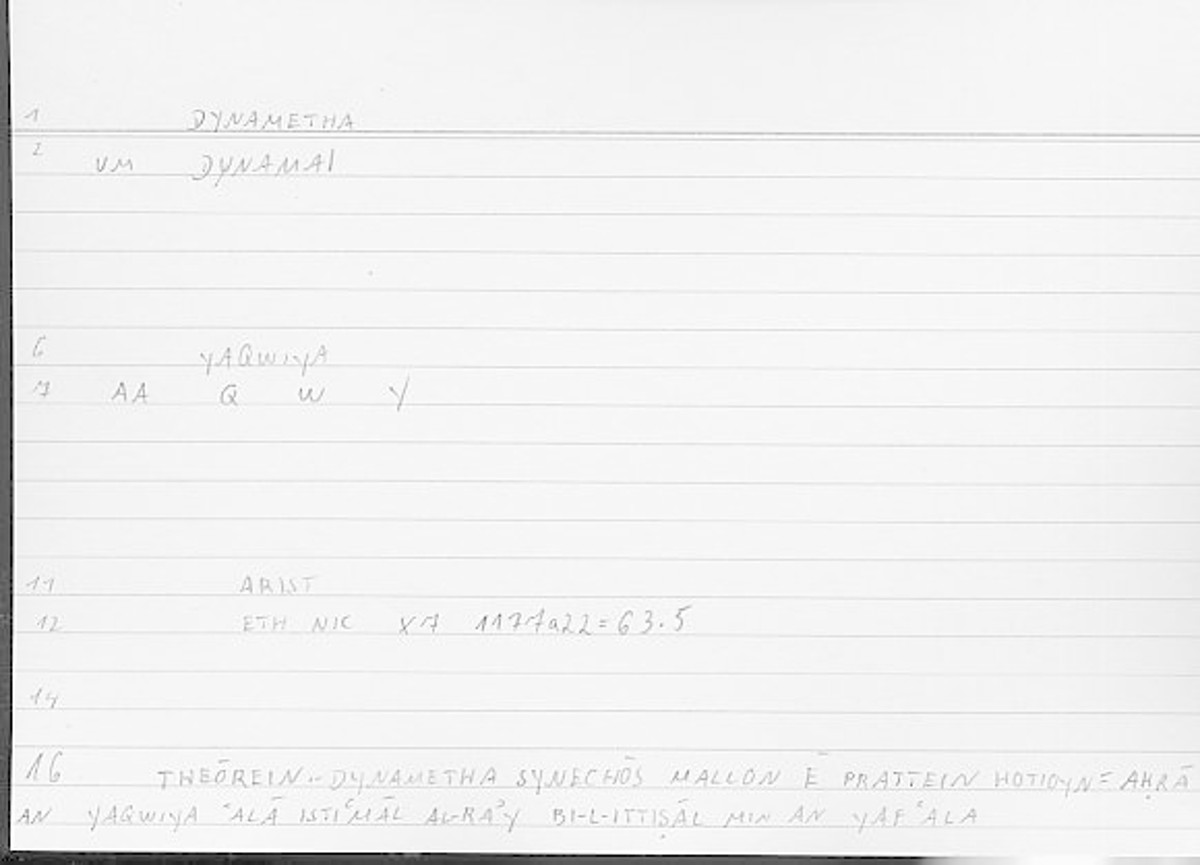 1 DYNAMETHA
2 VM DYNAMAI
6 YAQWIYA
7 AA Q W Y
11 ARIST
12 ETH NIC X7 1177a22=63.5
14
16 THEŌREIN.. DYNAMETHA SYNECHŌS MALLON Ē PRATTEIN HOTIOYN = AḤRĀ
AN YAQWIYA ʿALĀ ISTIʿMĀL AL-RAʾY BI-L-ITTIṢĀL MIN AN YAFʿALA